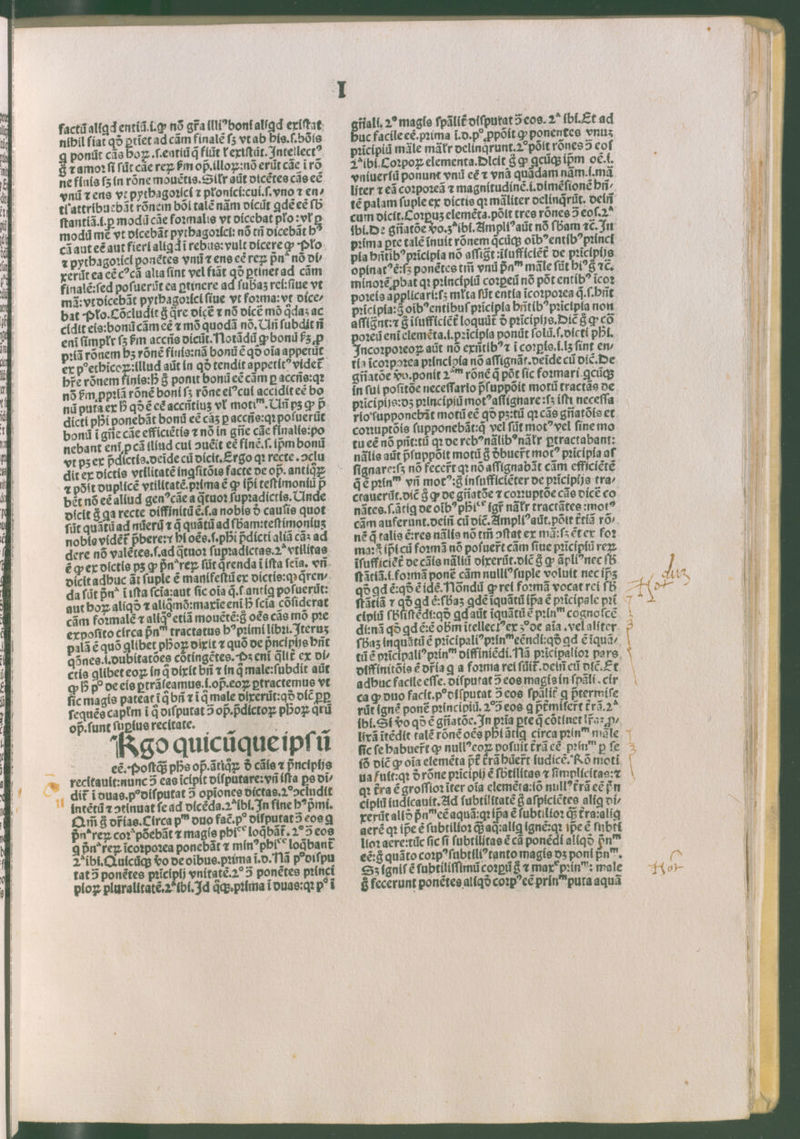 I
factū aliqd entiū.i.ꝙ nō gr̄a illi⁹ boni aliqd existat
nihil fiat qđ ꝑtiet ad cām finalē sꝫ vt ab his.s.hōis
q ponūt cās hoꝝ .s.entiū q̄ fiūt ⁊ existūt. Intellect⁹
ne finis sꝫ in rōne mouētis. Silr̄ aūt dicētes cās eē
vnū ⁊ ens vt pythagorici ⁊ p̄lonici:cui.s.vno ⁊ en/
ti attribuebāt rōnem boī talē nām dicūt qdē eē sb̄
stantiā.i.ꝑ modū cāe formalis vt dicebat plo:vl ꝑ
modū mē vt dicebāt pythagorici: nō tn̄ dicebāt h⁹
cā aut eē aut fieri aliqđ ī rebus: vult dicere ꝙ Plo
⁊ pythagorici ponētes vnū ⁊ ens eē reꝝ pn̄ᵃ nō di/
xerūt ea eē cᵒ cā alia sint vel fiāt qđ ꝑtinet ad cām
finalē:sed posuerūt ea ꝑtinere ad subaꝫ rei:siue vt
mā:vt dicebāt pythagorici siue vt forma:vt dice/
bat Plo.Cōcludit g̊ qr̄e dicē ⁊ nō dicē mō q̄daꝫ ac
cidit eis:bonū cām eē ⁊ mō quodā nō. Un̄ subdit n̄
eni simplr̄ sꝫ ẜm accn̄s dicūt. Notādū ꝙ bonū ẜꝫ ꝓ
priā rōnem hꝫ rōnē finis:nā bonū ē qđ oīa appetūt
ex pᵒ ethicoꝝ:illud aūt in qđ tendit appetit⁹ videt̄
hr̄e rōnem finis:H̄ g̊ ponūt bonū eē cām ꝑ accn̄s:qꝛ
nō ẜm ꝓpriā rōnē boni sꝫ rōne eī⁹ cui accidit eē bo
nū puta ex h̄ qđ ē eē accn̄tiuꝫ vl̄ motiᵐ. Un̄ pꝫ ꝙ p̄
dicti ph̄i ponebāt bonū eē cāꝫ ꝑ accn̄s:qꝛ posuerūt
bonū ī gn̄e cāe efficiētis ⁊ nō in gn̄e cāe finalis:po
nebant eni ꝑ cā illud cui ↄuēit eē finē.s.ip̄m bonū
vt pꝫ ex p̄dictis.deide cū dicit. Ergo qꝛ recte.ↄclu
dit ex dictis vtilitatē inq̄sitōis facte de op̄.antiq̄ꝝ
⁊ pōit duplicē vtilitatē.prima ē ꝙ ip̄i testimoniū p̄
bēt nō eē aliud gen⁹ cāe a q̄tuor supradictis. Unde
dicit g̊ qa recte diffinitū ē.s.a nobis đ causis quot
sūt quātū ad nūerū ⁊ q̄ quātū ad sp̄am:testimoniuꝫ
nobis vidēt̄ p̄bere:⁊ hī oēs.s.ph̄i p̄dicti aliā cāꝫ ad
dere nō valētes.s.ad q̄tuor supradictas.2ᵃ vtilitas
ē ꝙ ex dictis pꝫ ꝙ pn̄ᵃ reꝝ sūt qrenda ī ista scīa. vn̄
dicit adhuc āt suple ē manifestū ex dictis:ꝙ qren/
da sūt pn̄ᵃ ī ista scīa:aut sic oīa q̄.s.antiq posuerūt:
aut hoꝝ aliqđ ⁊ aliqmō:maxīe eni h̄ scīa cōsiderat
cām formalē ⁊ aliq̄⁹ etiā mouētē:g̊ oēs cās mō pre
exposito circa pn̄ᵐ tractatus h⁹ primi libri. Iteruꝫ
palā ē quō qlibet ph̄oꝝ dixit ⁊ quō de pncipijs hn̄t
qōnes.i.dubitatōes cōtingētes. Pꝫ eni q̄lit̄ ex di/
ctis qlibet eoꝝ in q̊ dixit bn̄ ⁊ in q̊ male:subdit aūt
ꝙ h̄ pᵒ de eis ꝑtrāseamus.i.op̄.eoꝝ ꝑtractemus vt
sic magis pateat ī q̊ bn̄ ⁊ ī q̊ male dixerūt:qđ dic̄ ꝓꝑ
seques cap̄lm ī q̊ disputat ↄ op̄.p̄dictoꝝ ph̄oꝝ qrū
op̄.sunt supius recitate.
Rgo quicūque ipsū
eē. Postq̄ꝫ ph̄s op̄.ātiq̄ꝝ đ cāis ⁊ pncipijs
recitauit:nunc ↄ eas īcipit disputare:vn̄ ista ps di/
dit̄ ī duas.pᵒ disputat ↄ opiones dictas.2ᵒ ↄcludit
intētū ⁊ ↄtinuat se ad dicēda.2ᵃ ibi. In fine h⁹ p̄mi.
Qm̄ g̊ dr̄ias. Circa pᵐ duo fac̄.pᵒ disputat ↄ eos q
pn̄ᵃ reꝝ cor⁹ pōebāt ⁊ magis phi⁽ᶜᶜ⁾ loq̄bāt̄.2ᵒ ↄ eos
q pn̄ᵃ reꝝ īcorporea ponebāt ⁊ min⁹ phi⁽ᶜᶜ⁾ loq̄bant̄
2ᵃ ibi. Quicūqꝫ ꝟo de oibus.prima ī.d. Nā pᵒ dispu
tat ↄ ponētes pricipij vnitatē.2ᵒ ↄ ponētes princi
pioꝝ pluralitatē.2ᵃ ibi. Id q̄qꝫ.prima ī duas:qꝛ pᵒ ī
gn̄ali.2ᵒ magis sp̄alit̄ disputat ↄ eos.2ᵃ ibi. Et ad
huc facile eē.prima ī.d.pᵒ ꝓpōit ꝙ ponentes vnuꝫ
pricipiū māle mālr̄ delinqrunt.2ᵒ pōit rōnes ↄ eos
2ᵃ ibi. Corpoꝝ elementa. Dicit g̊ ꝙ qcūqꝫ ip̄m oē.i.
vniuersū ponunt vnū eē ⁊ vnā quādam nām.i.mā
liter ⁊ eā corporeā ⁊ magnitudinē.i.dimēsionē hn̄/
tē palam suple ex dictis qꝛ māliter delinq̄rūt. dein̄
cum dicit. Corpuꝫ elemēta.pōit tres rōnes ↄ eos.2ᵃ
ibi. De gn̄atōe ꝟo.3ᵃ ibi. Ampli⁹ aūt nō sb̄am ⁊c̄. In
prima ꝑte talē īnuit rōnem qcūqꝫ oīb⁹ entib⁹ princi
pia hn̄tib⁹ pricipia nō assigt̄:īsufficiēt̄ de pricipijs
opinat⁹ ē:sꝫ ponētes tm̄ vnū pn̄ᵐ māle sūt hi⁹ g̊ ⁊c̄.
minorē ꝓbat qꝛ principiū corpeū nō pōt entib⁹ īcor
poreis applicari:sꝫ mlta sūt entia īcorporea q̄.s.hn̄t
pricipia:g̊ oib⁹ entibus pricipia hn̄tib⁹ pricipia non
assignt̄:⁊ g̊ īsufficiēt̄ loquūt̄ đ pricipijs. Dic̄ g̊ ꝙ cō
poreū eni elemēta.i.pricipia ponūt solū.s.dicti ph̄i.
Incorporeoꝝ aūt nō exn̄tib⁹ ⁊ ī corpīs.i.lꝫ sint en/
tia īcorporea principia nō assignāt.deide cū dic̄. De
gn̄atōe ꝟo.ponit 2ᵃᵐ rōnē q̄ pōt sic formari qcūqꝫ
in sui positōe necessario p̄suppōit motū tractās de
pricipijs:oꝫ principiū mot⁹ assignare:sꝫ isti necessa
rio supponebāt motū eē qđ pꝫ:tū qꝛ cās gn̄atōis et
corruptōis supponebāt:q̄ vel sūt mot⁹ vel sine mo
tu eē nō pn̄t:tū qꝛ de reb⁹ nālib⁹ nālr̄ ꝑtractabant:
nālis aūt p̄suppōit motū g̊ đbuert̄ mot⁹ pricipia as
signare:sꝫ nō fecer̄t qꝛ nō assignabāt cām efficiētē
q̄ ē prin ᵐ vn̄ mot⁹:g̊ insufficiēter de pricipijs tra/
ctauerūt.dic̄ g̊ ꝙ de gn̄atōe ⁊ corruptōe cās dicē co
nātes.s.ātiq de oīb⁹ phi⁽ᶜᶜ⁾ igr̄ nālr̄ tractātes:mot⁹
cām auferunt.dein̄ cū dic̄. Ampli⁹ aūt.pōit t̄tiā rō/
nē q̄ talis ē:res nālis nō tm̄ ↄstat ex mā:sꝫ ēt ex for
ma:g̊ ip̄i cū formā nō posuer̄t cām siue pricipiū reꝝ
īsufficiēt̄ de cāis nāliū dixerūt.dic̄ g̊ ꝙ āpli⁹ nec sb̄
stātiā.i.formā ponē cām nulli⁹ suple voluit nec ip̄ꝫ
qđ qd ē:qđ ē idē. Nōndū ꝙ rei formā vocat rei sb̄
stātiā ⁊ qđ qd ē:sb̄aꝫ qdē īquātū ip̄a ē pricipale pri
cipiū sb̄sistēdi:qđ qd aūt īquātū ē prin ᵐ cognoscē
di:nā qđ qd ē:ē obm̄ itellect⁹ ex 3ᵒ de aīa.vel aliter
sb̄aꝫ inquātū ē pricipali⁹ prin ᵐ eēndi:qđ qd ē īquā/
tū ē pricipali⁹ prin ᵐ diffiniēdi. Nā pricipalior pars
diffinitōis ē dr̄ia q̄ a forma rei sūit̄.dein̄ cū dic̄. Et
adhuc facile esse.disputat ↄ eos magis in sp̄ali.cir
ca ꝙ duo facit.pᵒ disputat ↄ eos sp̄alit̄ q p̄termise
rūt ignē ponē principiū.2ᵒ ↄ eos q p̄misert̄ t̄rā.2ᵃ
ibi. Si ꝟo qđ ē gn̄atōe. In pria ꝑte q̄ cōtinet lr̄aꝫ ꝓ/
lixā itēdit talē rōnē oēs ph̄i ātiq circa prin ᵐ male
sic se habuer̄t ꝙ null⁹ eoꝝ posuit t̄rā eē prin ᵐ ꝑ se
iō dic̄ ꝙ oīa elemēta p̄t̄ t̄rā būert̄ iudicē. Rō moti
ua fuit:qꝛ đ rōne pricipij ē sb̄tilitas ⁊ simplicitas:⁊
qꝛ t̄ra ē grossior iter oīa elemēta:iō null⁹ t̄rā eē pn̄
cipiū iudicauit. Ad subtilitatē g̊ aspiciētes aliq di/
xerūt aliđ pn̄ᵐ eē aquā:qꝛ ip̄a ē subtilior q̄ꝫ t̄ra:aliq
aerē qꝛ ip̄e ē subtilior q̄ꝫ aq̄:aliq ignē:qꝛ ip̄e ē subti
lior aere:tūc sic si subtilitas ē cā ponēdi aliqđ pn̄ᵐ
eē:g̊ quāto corp⁹ subtili⁹ tanto magis oꝫ poni pn̄ᵐ.
Sꝫ ignis ē subtilissimū corpū g̊ ⁊ max⁹ prin ᵐ: male
g̊ fecerunt ponētes aliqđ corp⁹ eē prin ᵐ puta aquā